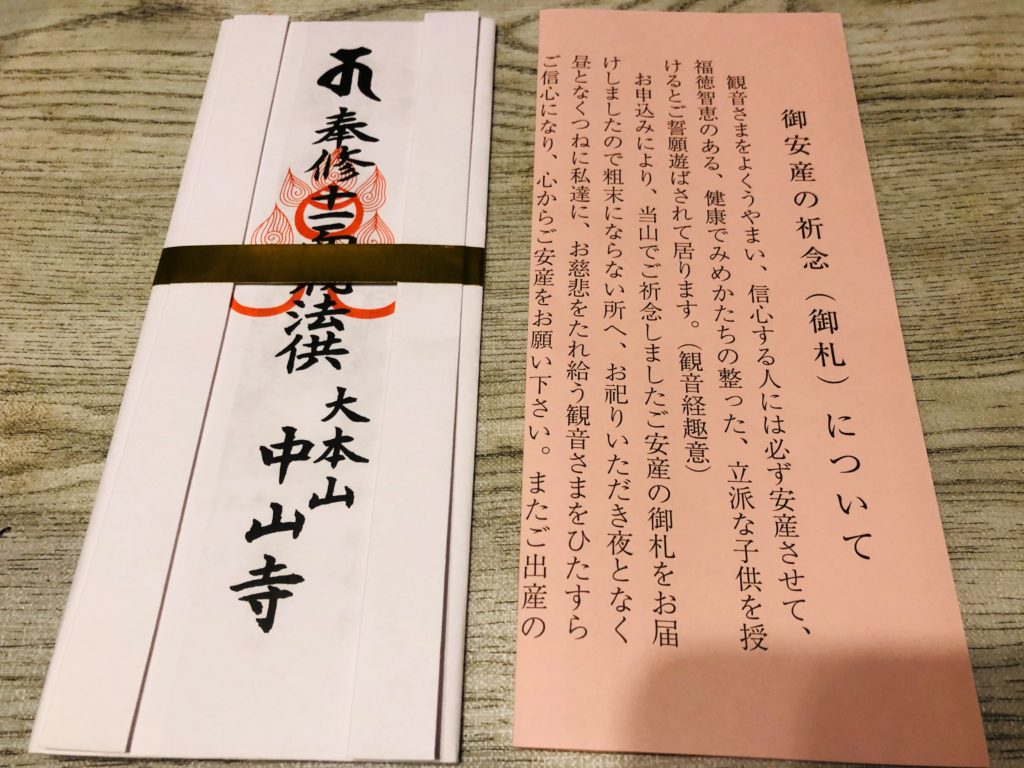 奉修十一面法供
大本山
中山寺
御安産の祈念（御札）について
観音さまをよくうやまい、信心する人には必ず安産させて、
福徳智恵のある、健康でみめかたちの整った、立派な子供を授
けるとご誓願遊ばされて居ります。（観音経趣意）
お申込みにより、当山でご祈念しましたご安産の御札をお届
けしましたので粗末にならない所へ、お祀りいただき夜となく
昼となくつねに私達に、お慈悲をたれ給う観音さまをひたすら
ご信心になり、心からご安産をお願い下さい。またご出産の